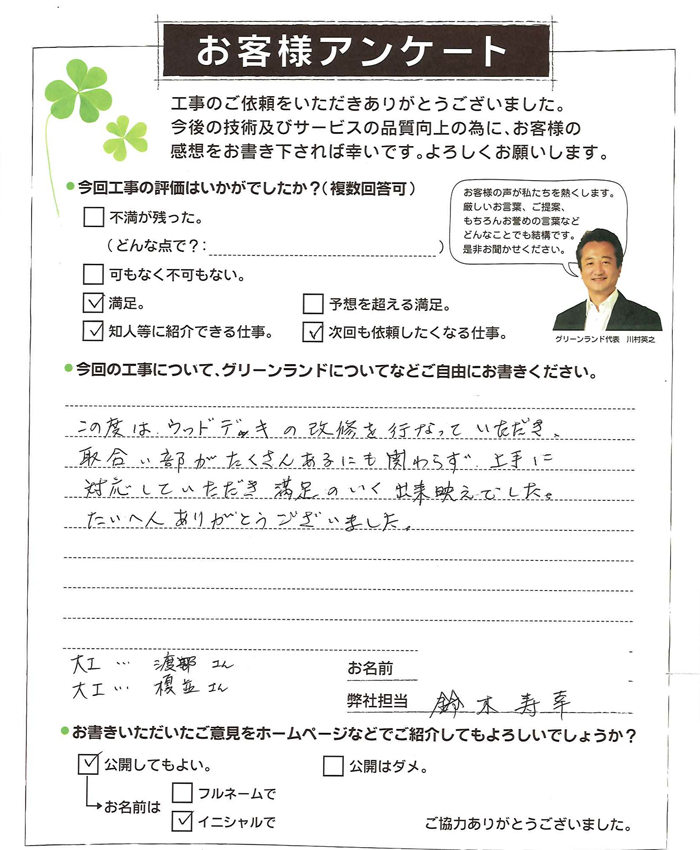 お客様アンケート
工事のご依頼をいただきありがとうございました。
今後の技術及びサービスの品質向上の為に、お客様の
感想をお書き下されば幸いです。よろしくお願いします。
●今回工事の評価はいかがでしたか?(複数回答可)
お客様の声が私たちを熱くします。
厳しいお言葉、ご提案、
もちろんお誉めの言葉など
どんなことでも結構です。
是非お聞かせください。
不満が残った。
(どんな点で?: )
可もなく不可もない。
満足。
予想を超える満足。
知人等に紹介できる仕事。
次回も依頼したくなる仕事。
グリーンランド代表 川村英之
●今回の工事について、グリーンランドについてなどご自由にお書きください。
この度は、ウッドデッキの改修を行なっていただき、
取合い部がたくさんあるにも関わらず、上手に
対応していただき満足のいく出来映えでした。
たいへんありがとうございました。
大工… 渡部さん
大工… 榎並さん
お名前
弊社担当 鈴木寿幸
●お書きいただいたご意見をホームページなどでご紹介してもよろしいでしょうか?
公開してもよい。
公開はダメ。
お名前は
フルネームで
イニシャルで
ご協力ありがとうございました。